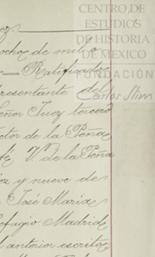 CENTRO DE
ESTUDIOS
DE HISTORIA
DE MEXICO
FUNDACIÓN
Carlos Slim
ochos de mil o
Ratificado
resentante de
Señor Juez tercero
tor de la Peña
te V. de la Peña
os y nueve de
José María
efugio Madrid
l anterior escritu